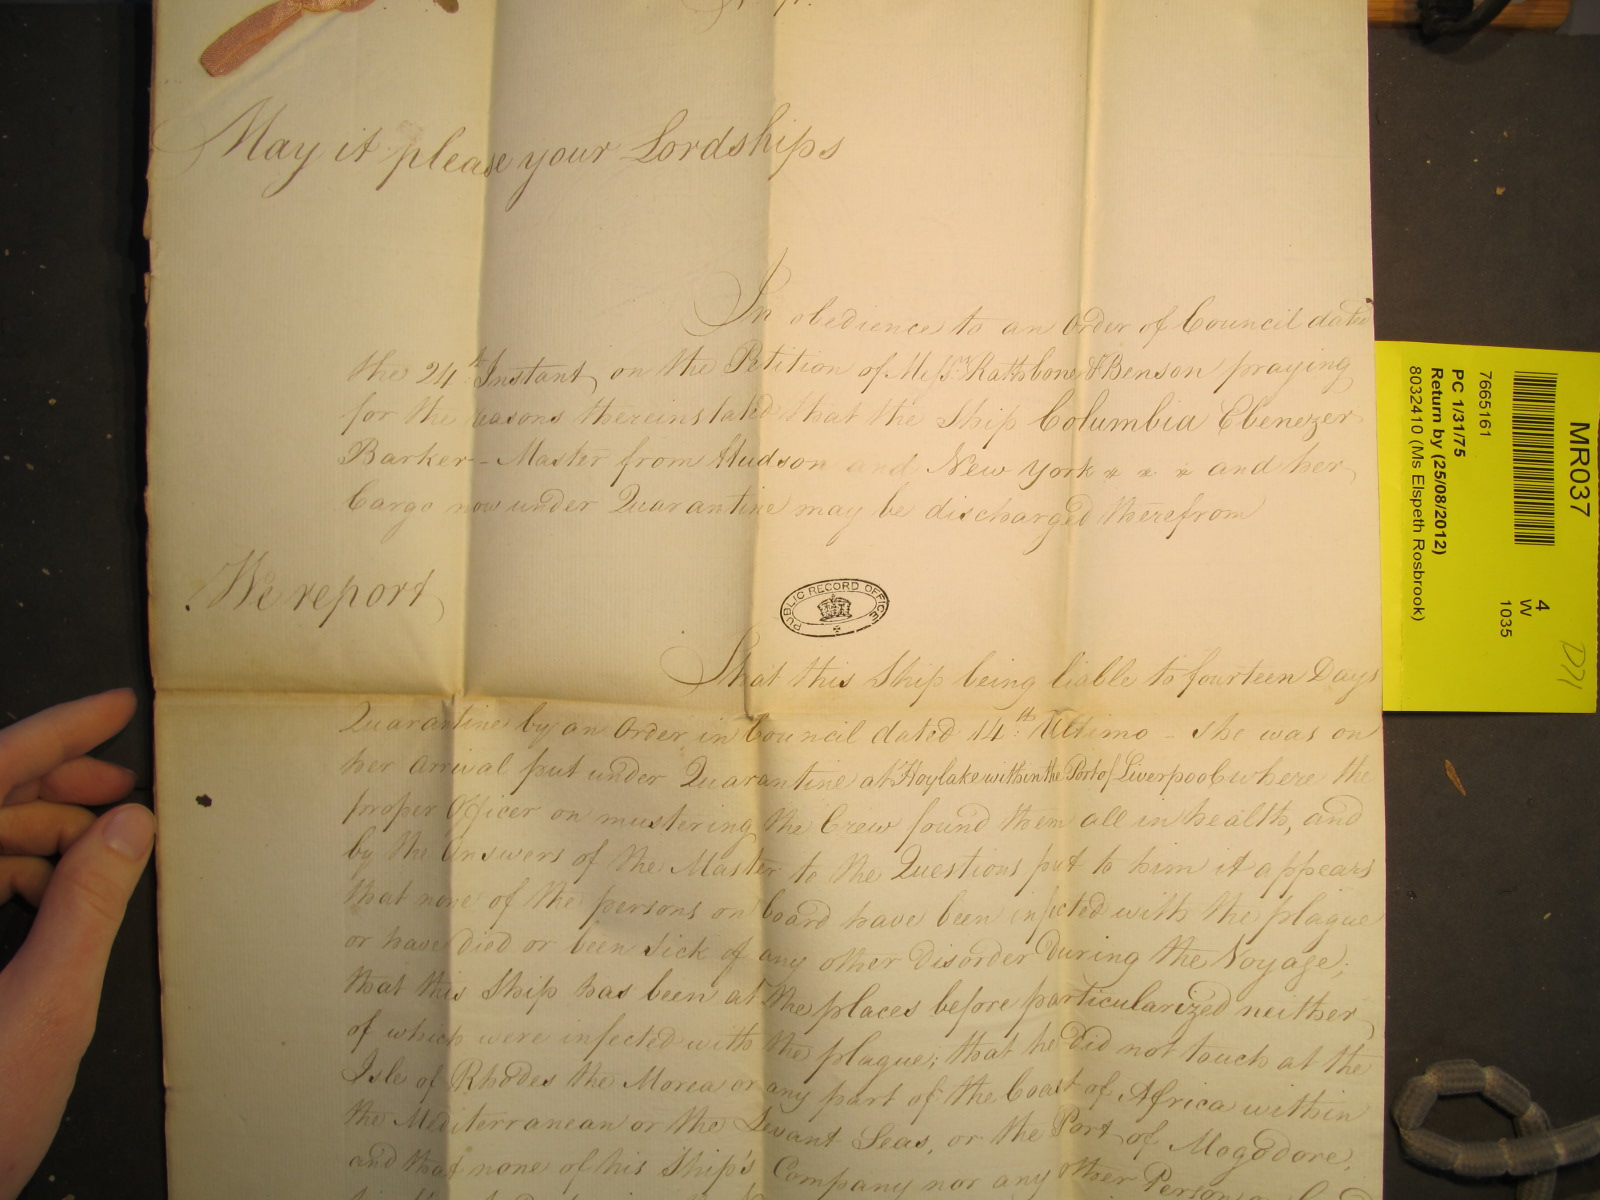 May it please your Lordships
In obedience to an Order of Council dated
the 24th Instant, on the Petition of Messrs Rathbone & Benson praying
for the reasons therein stated that the Ship Columbia Ebenezer
Barker - Master from Hudson and New York and her
Cargo now under Quarantine may be discharged therefrom
We report
PUBLIC RECORD OFFICE
That this Ship being liable to fourteen Days
Quarantine by an Order in Council dated 14th Ultimo - she was on
her arrival put under Quarantine at Hoylake within the Port of Liverpool where the
proper Officer on mustering the Crew found them all in health, and
by the Answers of the Master to the Questions put to him it appears
that none of the persons on board have been infected with the plague
or have died or been sick of any other Disorder During the Voyage;
that this Ship has been at the places before particularized neither
of which were infected with the plague; that he did not touch at the
Isle of Rhodes the Morea or any part of the Coast of Africa within
the Mediterranean or the Levant Seas, or the Port of Mogodore,
and that none of his Ship's Company nor any other Person
MR037
7665161
PC 1/31/75
Return by (25/08/2012)
8032410 (Ms Elspeth Rosbrook)
4
W
1035
D71